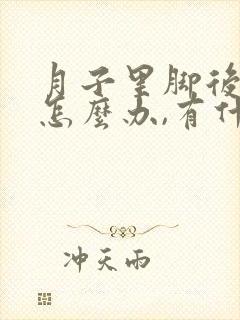 月子里脚後
怎麼办,有什
冲天雨